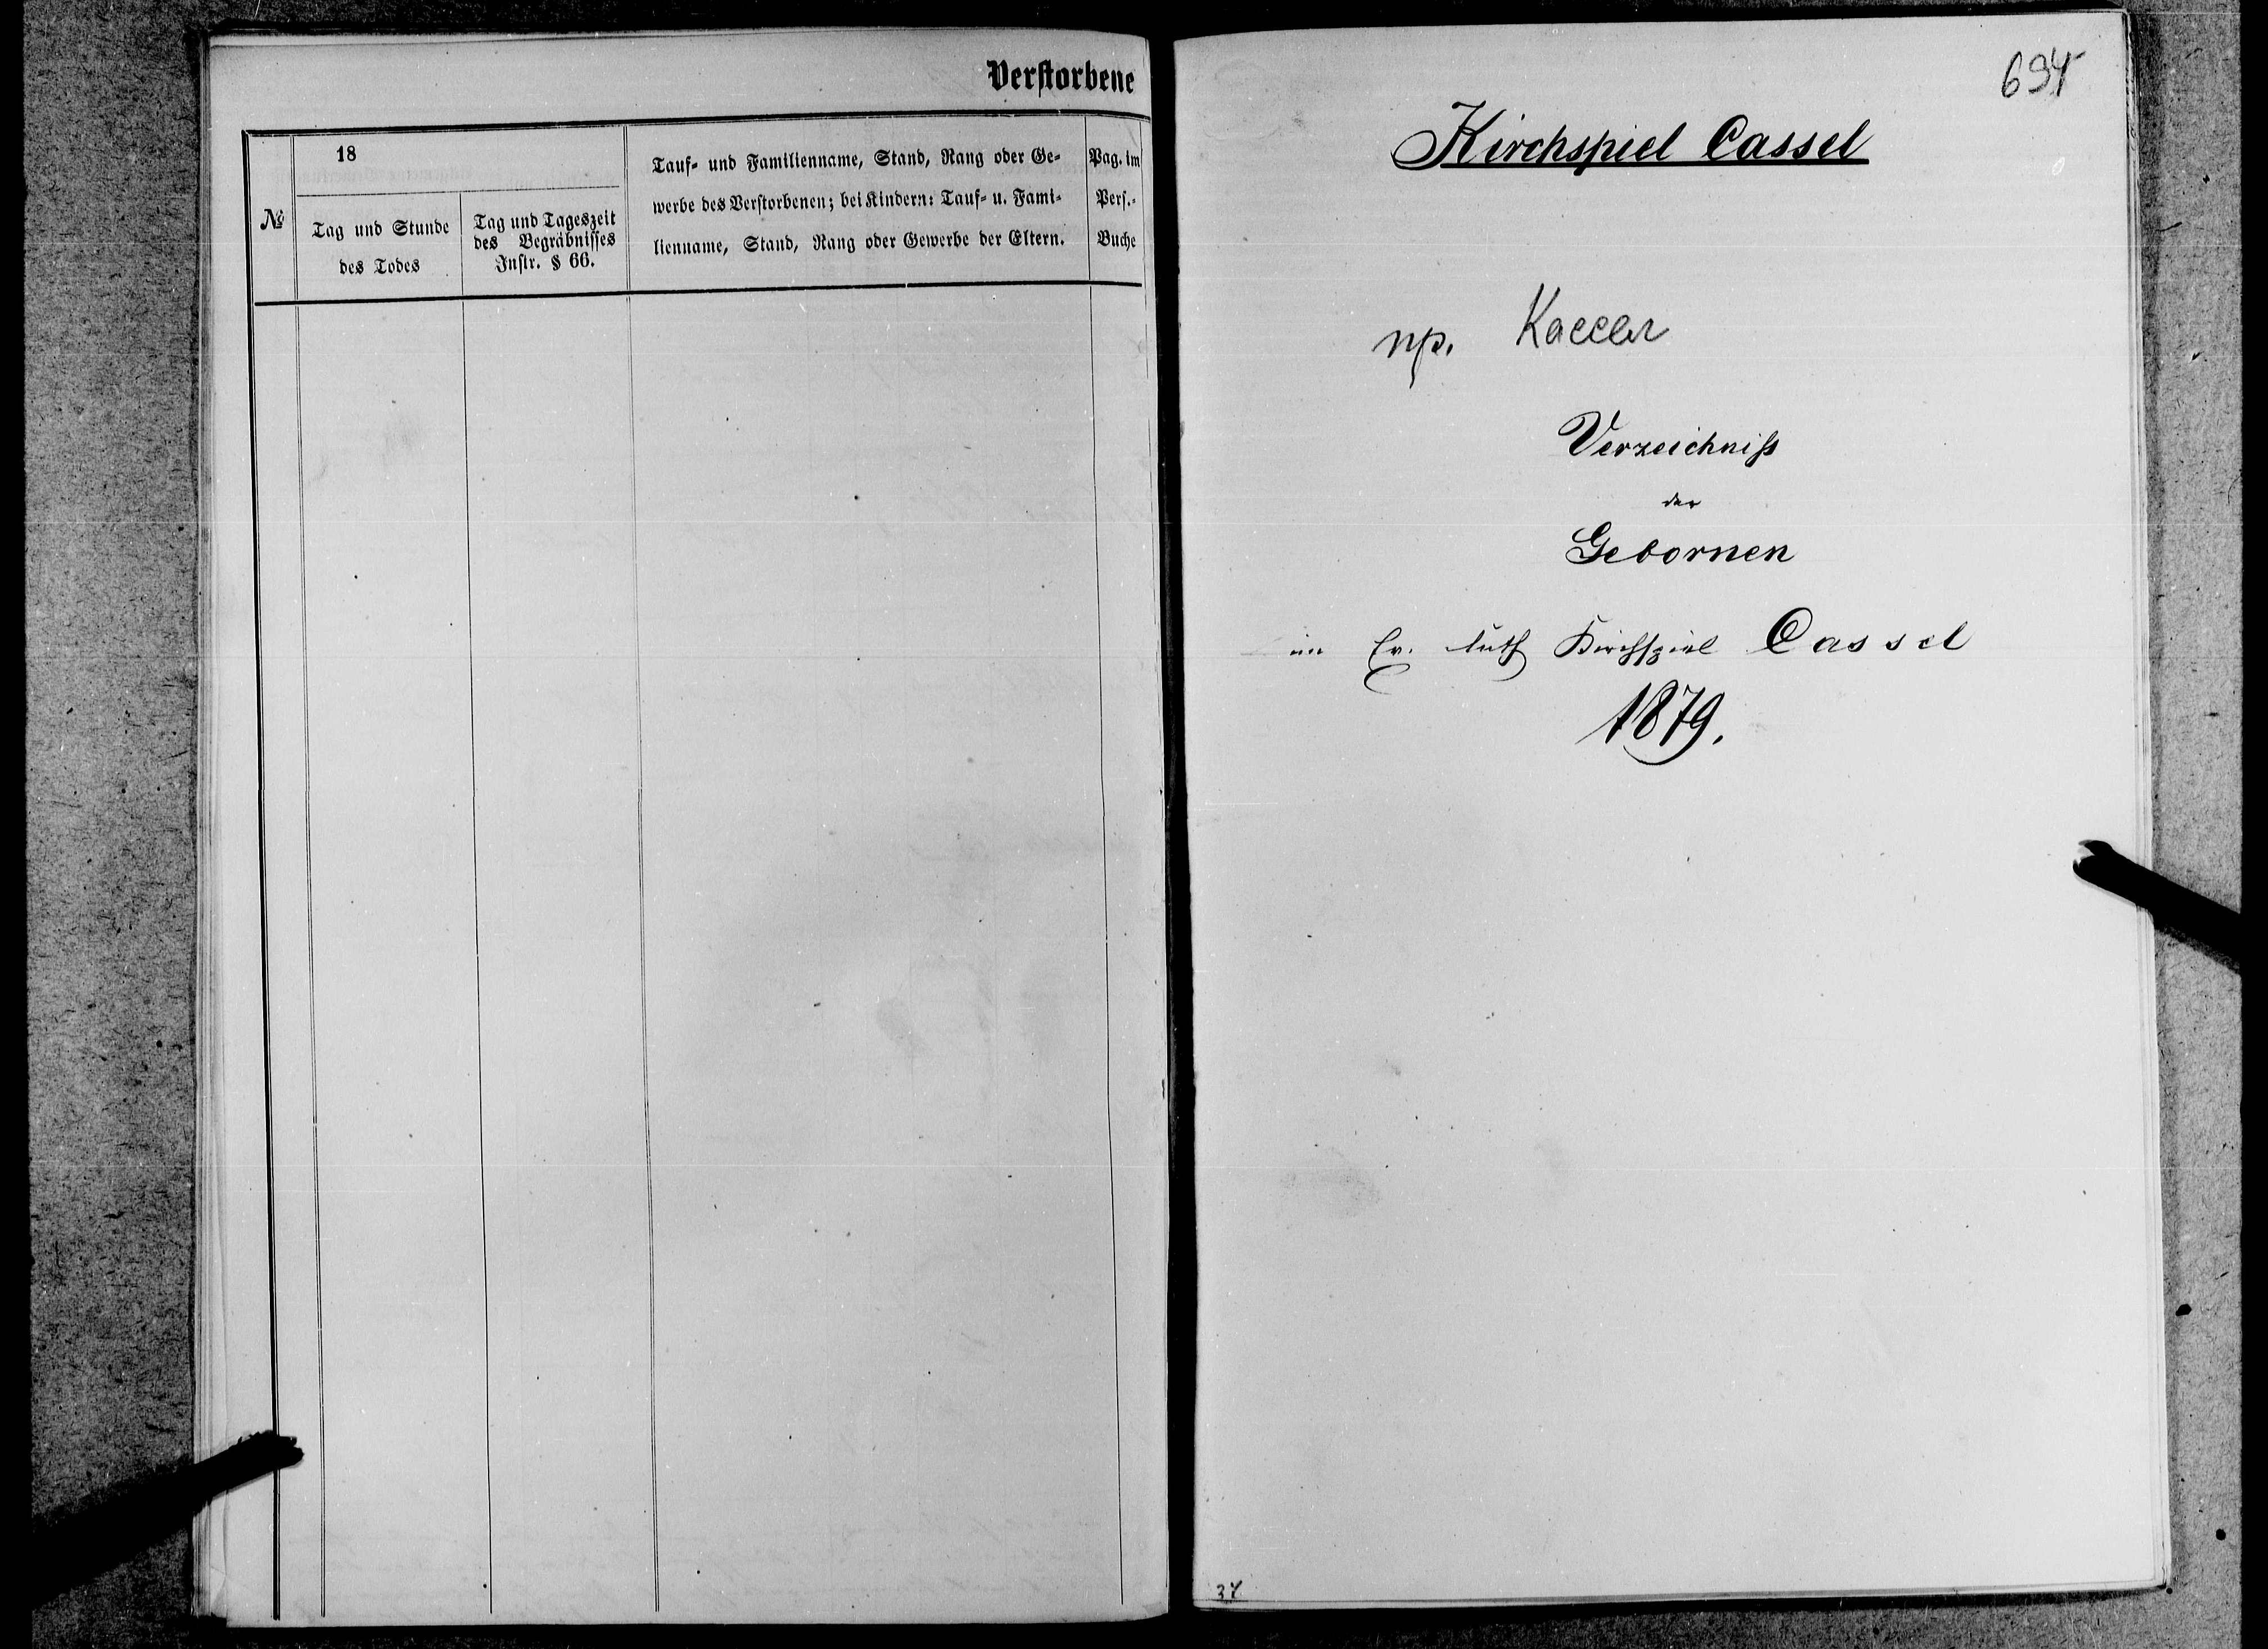 Verstorbene
№
18
Tag und Stunde
des Todes
Tag und Tageszeit
des Begräbnisses
Instr. § 66.
Tauf- und Familienname, Stand, Rang oder Ge-
werbe des Verstorbenen; bei Kindern: Tauf- u. Fami-
lienname, Stand, Rang oder Gewerbe der Eltern.
Pag. im
Pers.-
Buche
694
Kirchspiel Cassel
пр. Кассель
Verzeichniß
der
Gebornen
im Ev. luth Kirchspiel Cassel
1879.
37